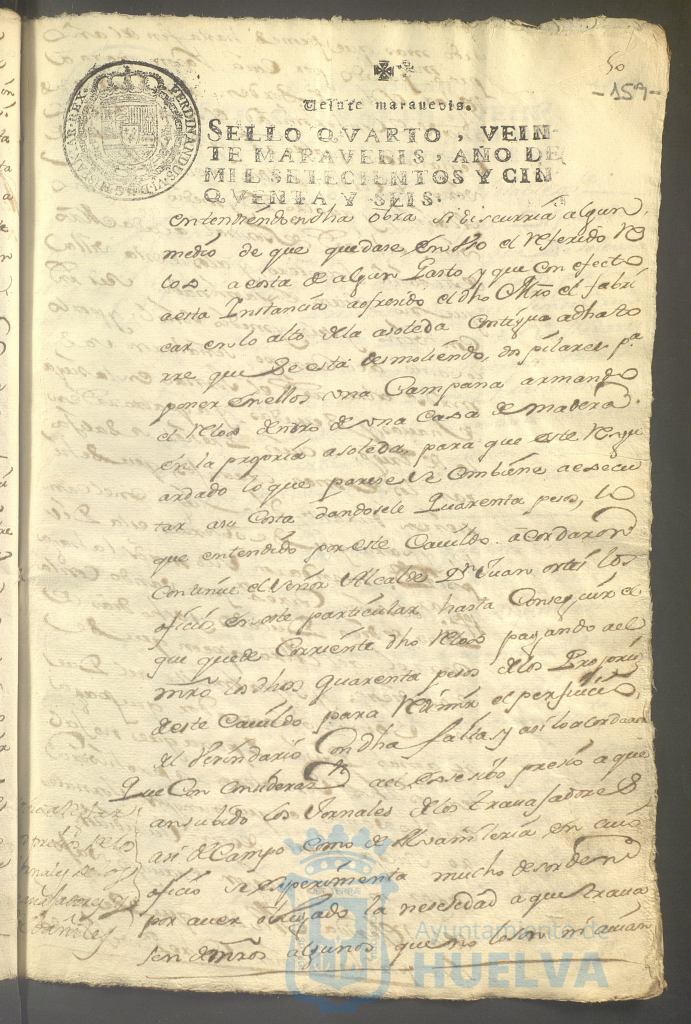 50
-159-
FERDINANDUS VI D G HISPANIAR REX
Veinte maravedis.
SELLO QVARTO, VEIN-
TE MARAVEDIS, AÑO DE
MIL SETECIENTOS Y CIN
QVENTA Y SEIS.
entendiendo en dha obra si discurria algun
medio de que quedase en Uso el Referido Re
lox a costa de algun Gasto y que con efecto
a esta Instancia ofrendo el dho Mro el fabri
car en lo alto de la asoteda contigua a dha to
rre que se está desmoliendo, dos pilares pa
poner en ellos una Campana armando
el Relox dentro de una casa de madera
en la propria asoteda, para que este Resgu
ardado lo que parese se combiene a execu
tar a su costa dandosele quarenta pesos, lo
que entendido por este Cavildo acordaron
continue el Señor Alcalde Dn Juan ortis los
oficios en este particular hasta conseguir el
que quede corriente dho Relox pagando a el
mro los dhos quarenta pesos de los Proprios
de este Cavildo para Redimir el perjuicio
del Vecindario Con dha falta y asi lo acordaron
Que Con considerazn a el exsesibo presio a que
an subido los Jornales de los travajadores
asi de Campo como de Alvañileria, en cuio
oficio se experimenta mucho desorden
por aver obligado la nesesidad a que trava
jen de mros algunos que no lo son
Ayuntamiento de
HUELVA